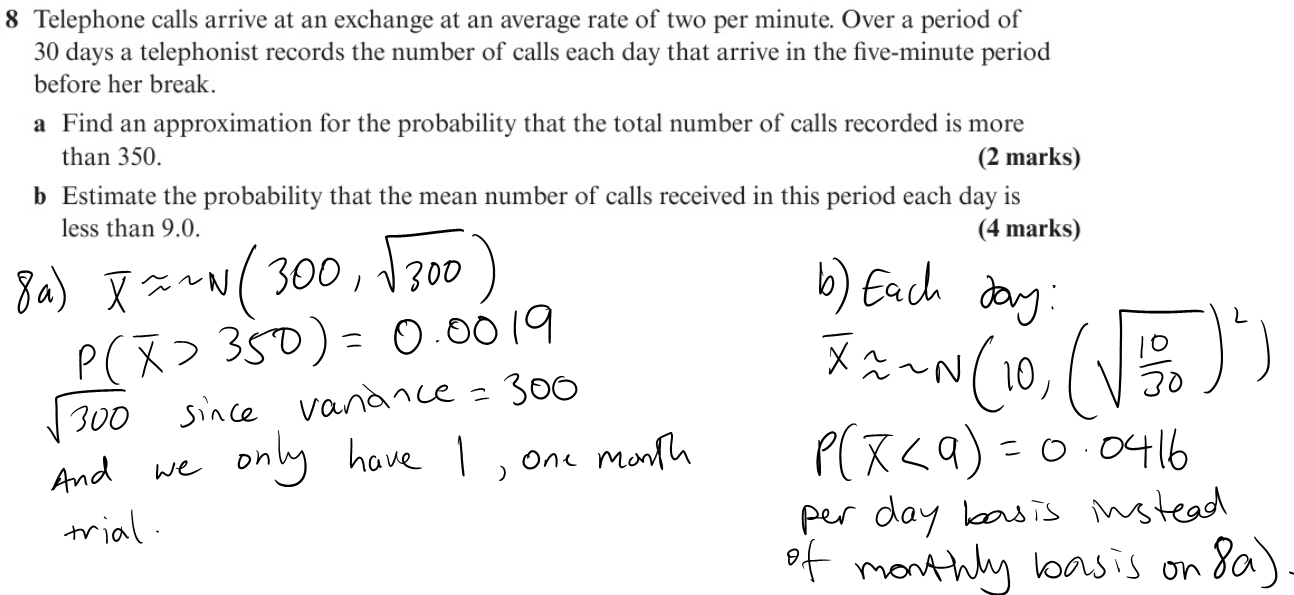 8 Telephone calls arrive at an exchange at an average rate of two per minute. Over a period of
30 days a telephonist records the number of calls each day that arrive in the five-minute period
before her break.
a Find an approximation for the probability that the total number of calls recorded is more
than 350. (2 marks)
b Estimate the probability that the mean number of calls received in this period each day is
less than 9.0. (4 marks)
8a) X̄ ≈~N(300, √300)
P(X̄ > 350) = 0.0019
√300 since variance = 300
And we only have 1, one month
trial.
b) Each day:
X̄ ≈~N(10, (√(10/30))²)
P(X̄ < 9) = 0.0416
per day basis instead
of monthly basis on 8a).